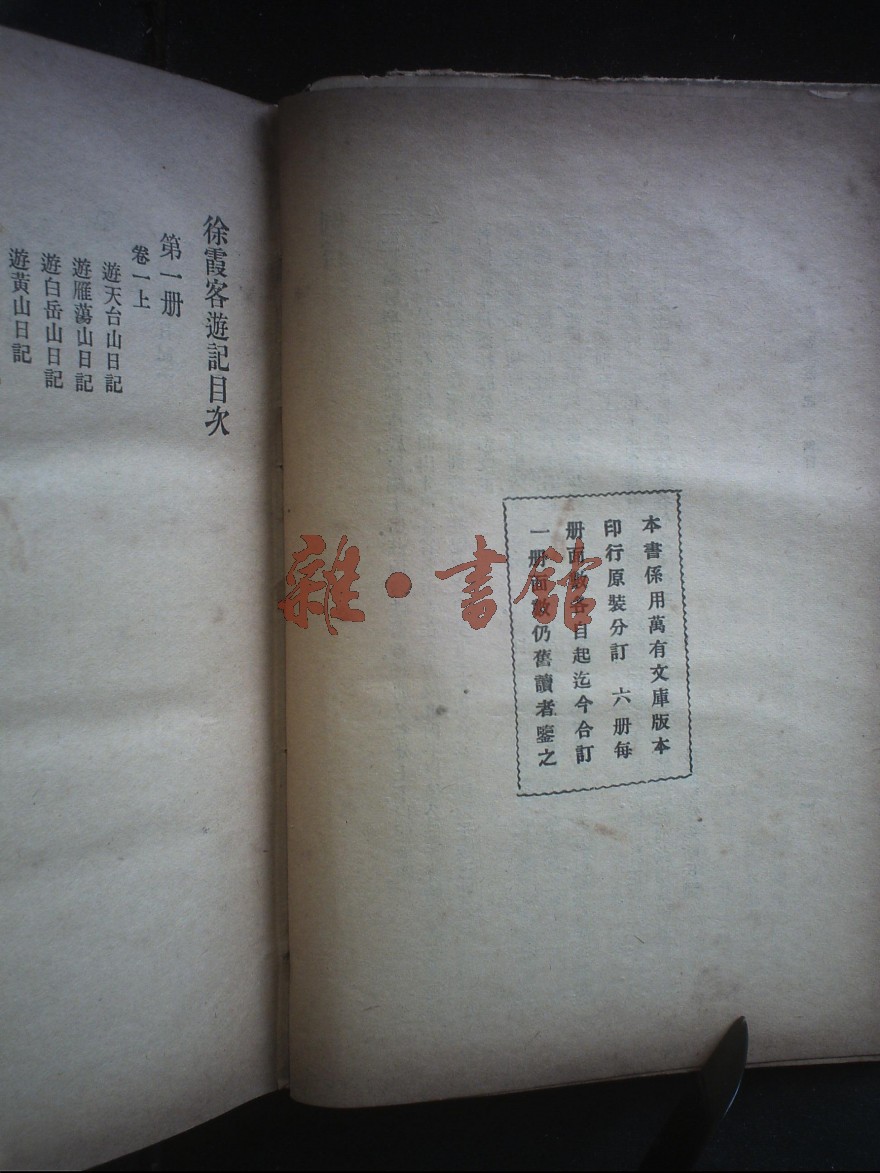 本書係用萬有文庫版本
印行原裝分訂 六册每
册面數各自起迄今合訂
一册面數仍舊讀者鑒之
徐霞客遊記目次
第一册
卷一上
遊天台山日記
遊雁蕩山日記
遊白岳山日記
遊黃山日記
雜·書館